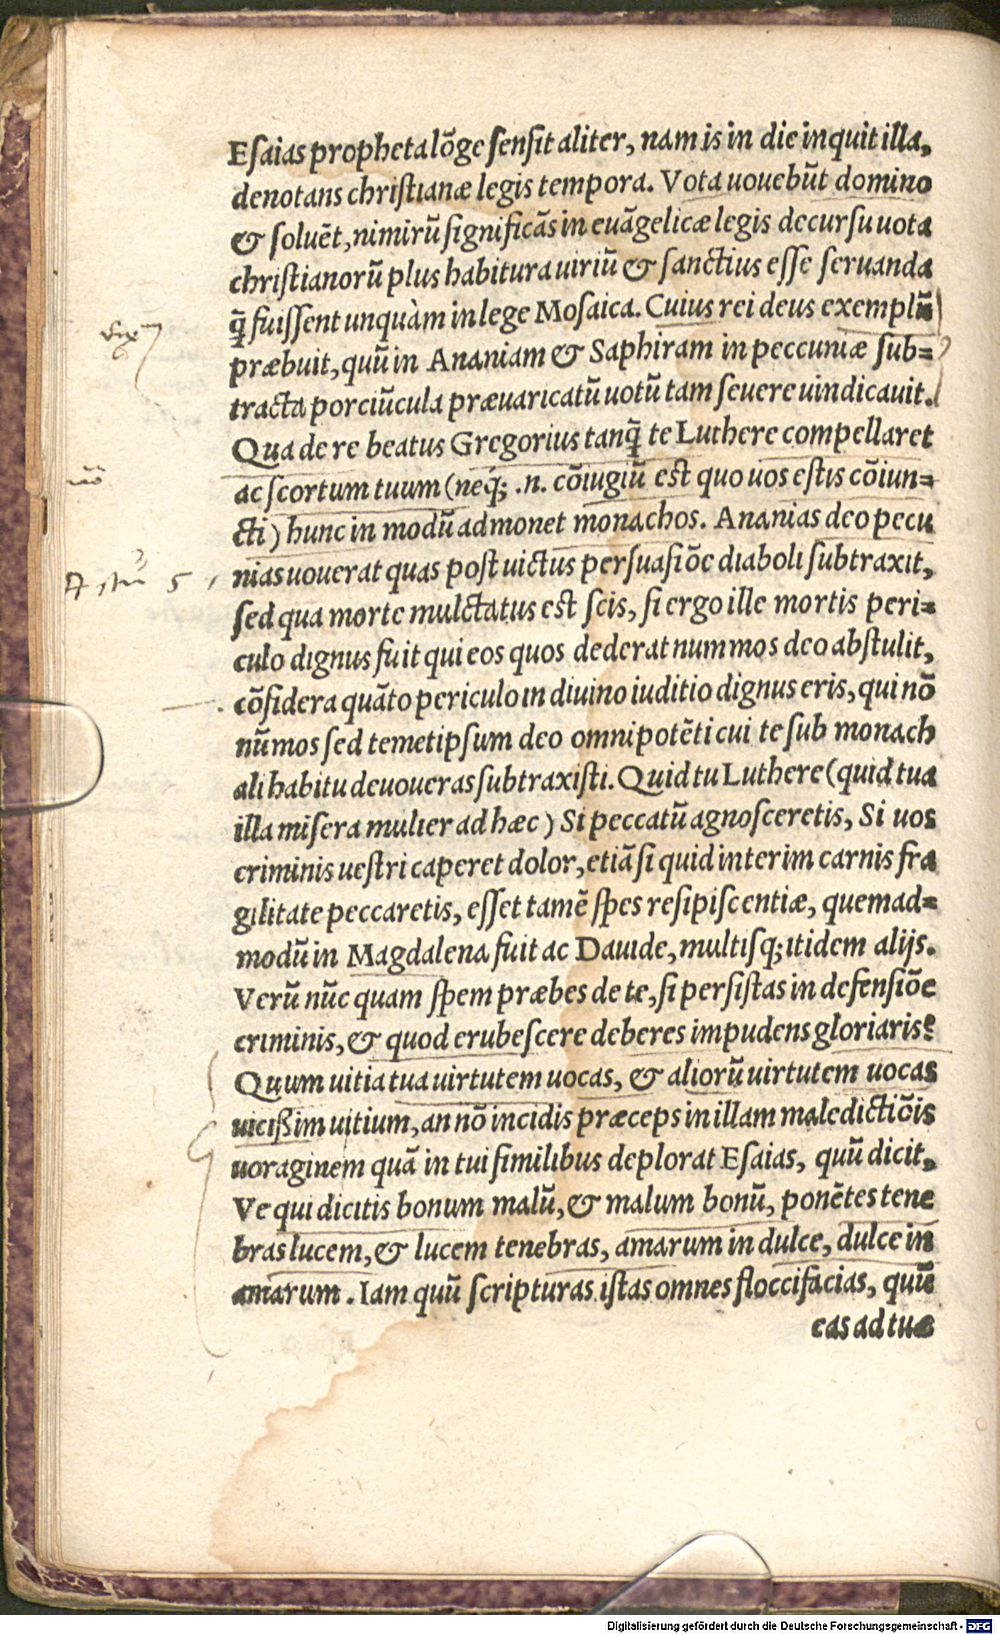 Esaias propheta lõge sensit aliter, nam is in die inquit illa,
denotans christianæ legis tempora. Vota uouebũt domino
& soluẽt, nimirũ significãs in euãgelicæ legis decursu uota
christianorũ plus habitura uiriũ & sanctius esse seruanda
q̃ fuissent unquàm in lege Mosaica. Cuius rei deus exemplũ
præbuit, quũ in Ananiam & Saphiram in peccuniæ sub=
tracta porciũcula præuaricatũ uotũ tam seuere uindicauit.
Qua de re beatus Gregorius tanq̃ te Luthere compellaret
ac scortum tuum (neq́; .n. cõiugiũ est quo uos estis cõiun=
cti) hunc in modũ admonet monachos. Ananias deo pecu
nias uouerat quas post uictus persuasiõe diaboli subtraxit,
sed qua morte mulctatus est scis, si ergo ille mortis peri=
culo dignus fuit qui eos quos dederat nummos deo abstulit,
cõsidera quãto periculo in diuino iuditio dignus eris, qui nõ
nũmos sed temetipsum deo omnipotẽti cui te sub monach
ali habitu deuoueras subtraxisti. Quid tu Luthere (quid tua
illa misera mulier ad hæc) Si peccatũ agnosceretis, Si uos
criminis uestri caperet dolor, etiã si quid interim carnis fra
gilitate peccaretis, esset tamẽ spes resipiscentiæ, quemad=
modũ in Magdalena fuit ac Dauide, multisq; itidem alijs.
Verũ nũc quam spem præbes de te, si persistas in defensiõe
criminis, & quod erubescere deberes impudens gloriaris?
Quum uitia tua uirtutem uocas, & aliorũ uirtutem uocas
uicißim uitium, an nõ incidis præceps in illam maledictiõis
uoraginem quã in tui similibus deplorat Esaias, quũ dicit,
Ve qui dicitis bonum malũ, & malum bonũ, ponẽtes tene
bras lucem, & lucem tenebras, amarum in dulce, dulce in
amarum. Iam quũ scripturas istas omnes floccifacias, quũ
eas ad tuæ
Digitalisierung gefördert durch die Deutsche Forschungsgemeinschaft - DFG